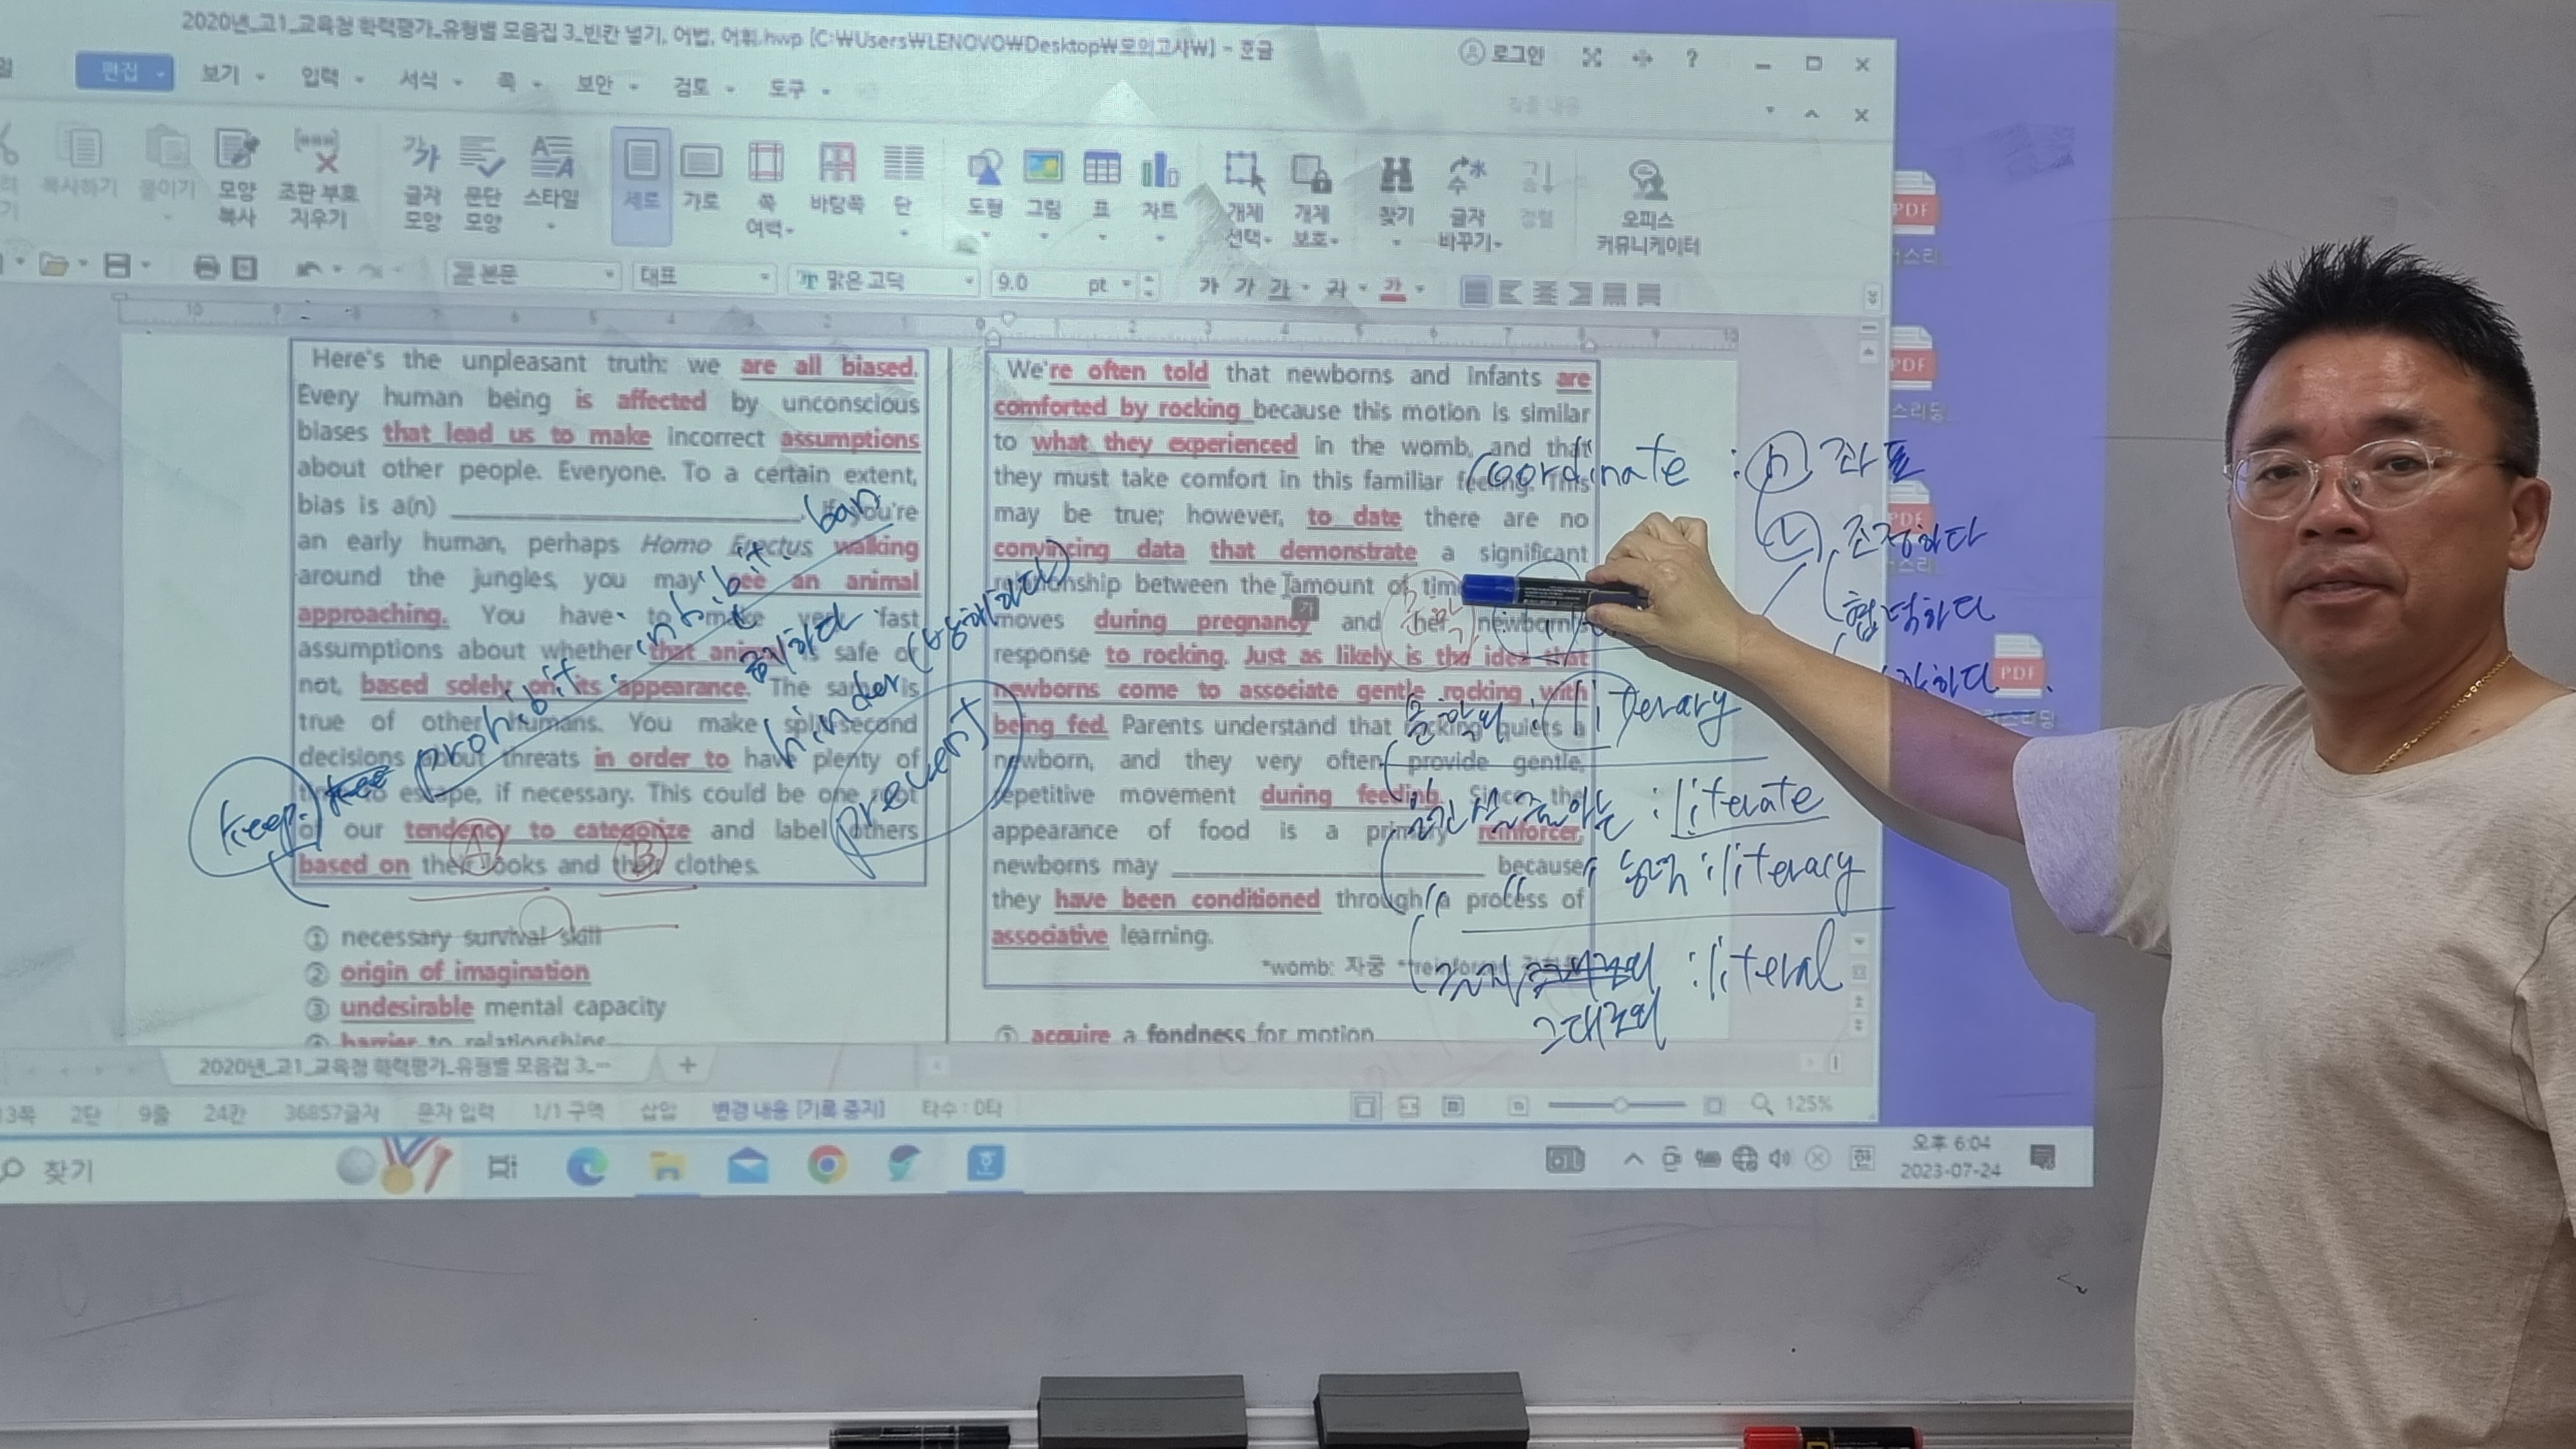 2020년_고1_교육청 학력평가_유형별 모음집 3_빈칸 넣기, 어법, 어휘.hwp [C:₩Users₩LENOVO₩Desktop₩모의고사₩] - 훈글
로그인 ?
편집 보기 입력 서식 쪽 보안 검토 도구
복사하기 붙이기 모양 복사 조판 부호 지우기 글자 모양 문단 모양 스타일 세로 가로 쪽 여백 바탕쪽 단 도형 그림 표 차트 개체 선택 개체 보호 찾기 글자 바꾸기 정렬 오피스 커뮤니케이터
본문 대표 맑은 고딕 9.0 pt 가 가 가 가 가
Here's the unpleasant truth: we are all biased.
Every human being is affected by unconscious
biases that lead us to make incorrect assumptions
about other people. Everyone. To a certain extent,
bias is a(n) ____________. If you're
an early human, perhaps Homo Erectus walking
around the jungles, you may see an animal
approaching. You have to make very fast
assumptions about whether that animal is safe or
not, based solely on its appearance. The same is
true of other humans. You make split-second
decisions about threats in order to have plenty of
time to escape, if necessary. This could be one root
of our tendency to categorize and label others
based on their looks and their clothes.
① necessary survival skill
② origin of imagination
③ undesirable mental capacity
④ barrier to relationships
We're often told that newborns and infants are
comforted by rocking because this motion is similar
to what they experienced in the womb, and that
they must take comfort in this familiar feeling. This
may be true; however, to date there are no
convincing data that demonstrate a significant
relationship between the amount of time
moves during pregnancy and her newborn's
response to rocking. Just as likely is the idea that
newborns come to associate gentle rocking with
being fed. Parents understand that rocking quiets a
newborn, and they very often provide gentle,
repetitive movement during feeding. Since the
appearance of food is a primary reinforcer,
newborns may ____________ because
they have been conditioned through a process of
associative learning.
*womb: 자궁 **reinforcer
① acquire a fondness for motion
keep
prohibit inhibit ban
금지하다
hinder (방해하다)
prevent
A B
coordinate : n 좌표
v 조정하다
협력하다
문학의 : literary
읽고 쓸 줄 아는 : literate
능력 : literacy
글자 그대로의 : literal
PDF
PDF
PDF
PDF
2020년_고1_교육청 학력평가_유형별 모음집 3_··· +
2단 9줄 24칸 36857글자 문자 입력 1/1 구역 삽입 변경 내용 [기록 중지] 타수 : 0타 125%
찾기
오후 6:04
2023-07-24